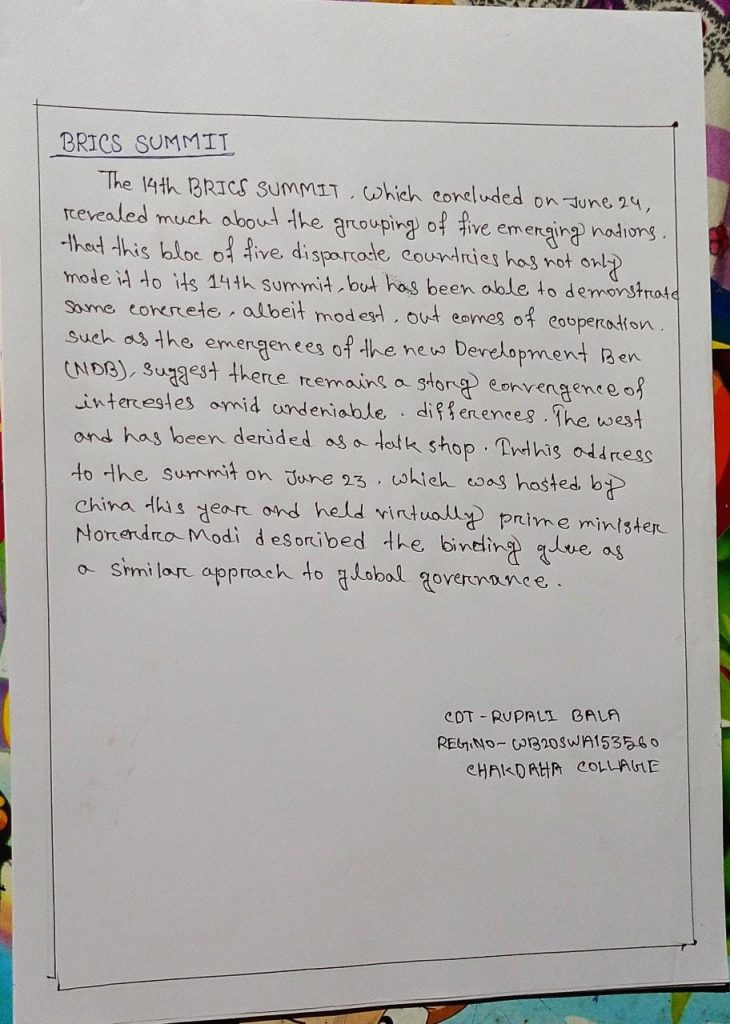 BRICS SUMMIT
The 14th BRICS SUMMIT, which concluded on June 24,
revealed much about the grouping of five emerging nations.
that this bloc of five disparate countries has not only
mode it to its 14th summit, but has been able to demonstrate
same concrete, albeit modest, out comes of cooperation.
such as the emergences of the new Development Ben
(NDB), suggest there remains a stong convergence of
interestes amid undeniable. differences. The west
and has been derided as a talk shop. Inthis address
to the summit on June 23, which was hosted by
china this year and held virtually prime minister
Norendra Modi desoribed the binding glue as
a similar apprach to global governance.
CDT - RUPALI BALA
REG.NO- WB20SWA153560
CHAKDAHA COLLAGE